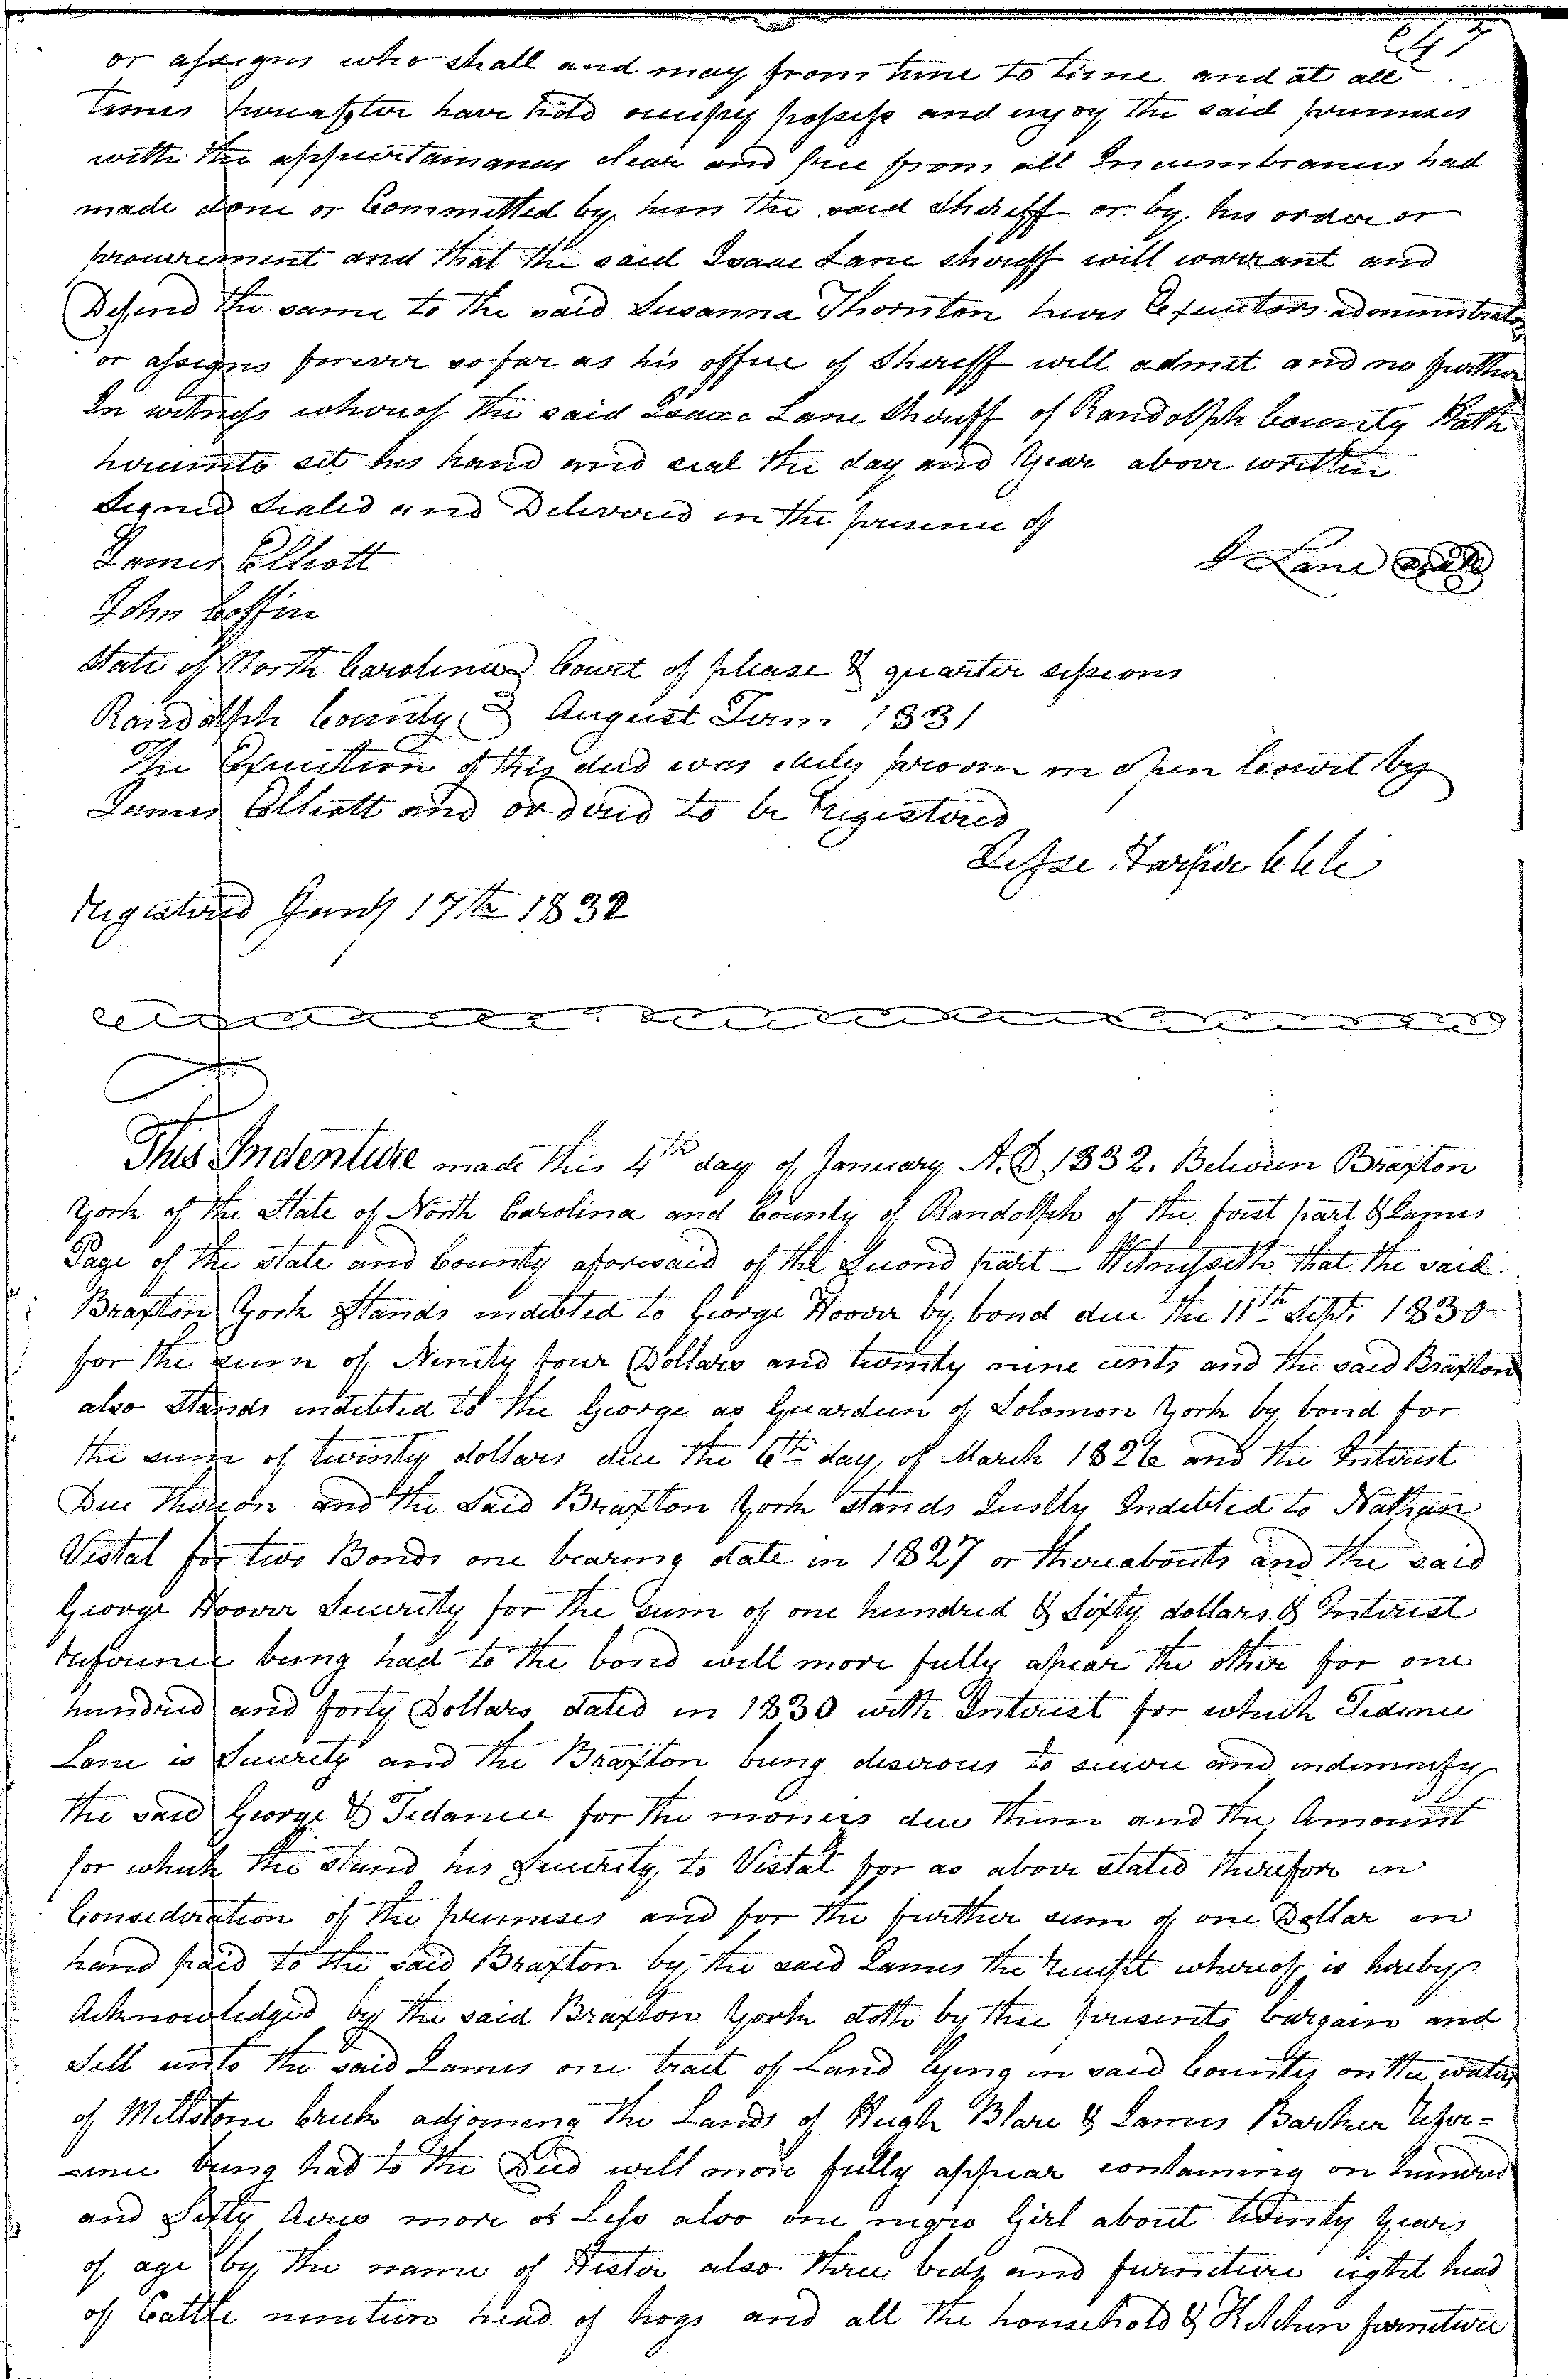 247
or assigns who shall and may from time to time and at all
times hereafter have hold occupy possess and enjoy the said premises
with the appurtainances clear and free from all Incumbrances had
made done or Committed by him the said Sheriff or by his order or
procurement and that the said Isaac Lane Sheriff will warrant and
Defend the same to the said Susanna Thornton heirs Executors administrators
or assigns forever so far as his office of Sheriff will admit and no further
In witness whereof the said Isaac Lane Sheriff of Randolph County Hath
hereunto set his hand and seal the day and Year above written
Signed Sealed and Delivered in the presence of
James Elliott
I Lane Seal
John Coffin
State of North Carolina Court of please & quarter sessions
Randolph County August Term 1831
The Execution of this deed was duly proven in open Court by
James Elliott and ordered to be Registered
Jesse Harper Clk
Registered Jany 17th 1832
This Indenture made this 4th day of January A.D. 1832. Between Braxton
York of the State of North Carolina and County of Randolph of the first part & James
Page of the state and County aforesaid of the Second part - Witnesseth that the said
Braxton York Stands indebted to George Hoover by bond due the 11th Sept. 1830
for the sum of Ninity four Dollars and twenty nine cents and the said Braxton
also Stands indebted to the George as Guardein of Solomon York by bond for
the sum of twenty dollars due the 6th day of March 1826 and the Interest
Due Thereon and the Said Braxton York Stands Justly Indebted to Nathan
Vestal for two Bonds one bearing date in 1827 or thereabouts and the said
George Hoover Security for the sum of one hundred & Fifty dollars & Interest
reference being had to the bond will more fully apear the other for one
hundred and forty Dollars dated in 1830 with Interest for which Tidence
Lane is Security and the Braxton being desirous to secure and indemnify
the said George & Tidance for the moneys due them and the Amount
for which the stand his Security to Vestal for as above stated therefore in
Consideration of the premises and for the further sum of one Dollar in
hand paid to the said Braxton by the said James the receipt whereof is hereby
Acknowledged by the said Braxton York doth by these presents bargain and
Sell unto the said James one tract of Land lying in said County on the waters
of Millstone Creek adjoining the Lands of Hugh Blare & James Barker Refer=
=ence being had to the Deed will more fully appear containing on hundred
and Fifty Acres more or Less also one negro Girl about twenty Years
of age by the name of Hester also three beds and furniture eight head
of Cattle nineteen head of hogs and all the household & Kitchen furniture